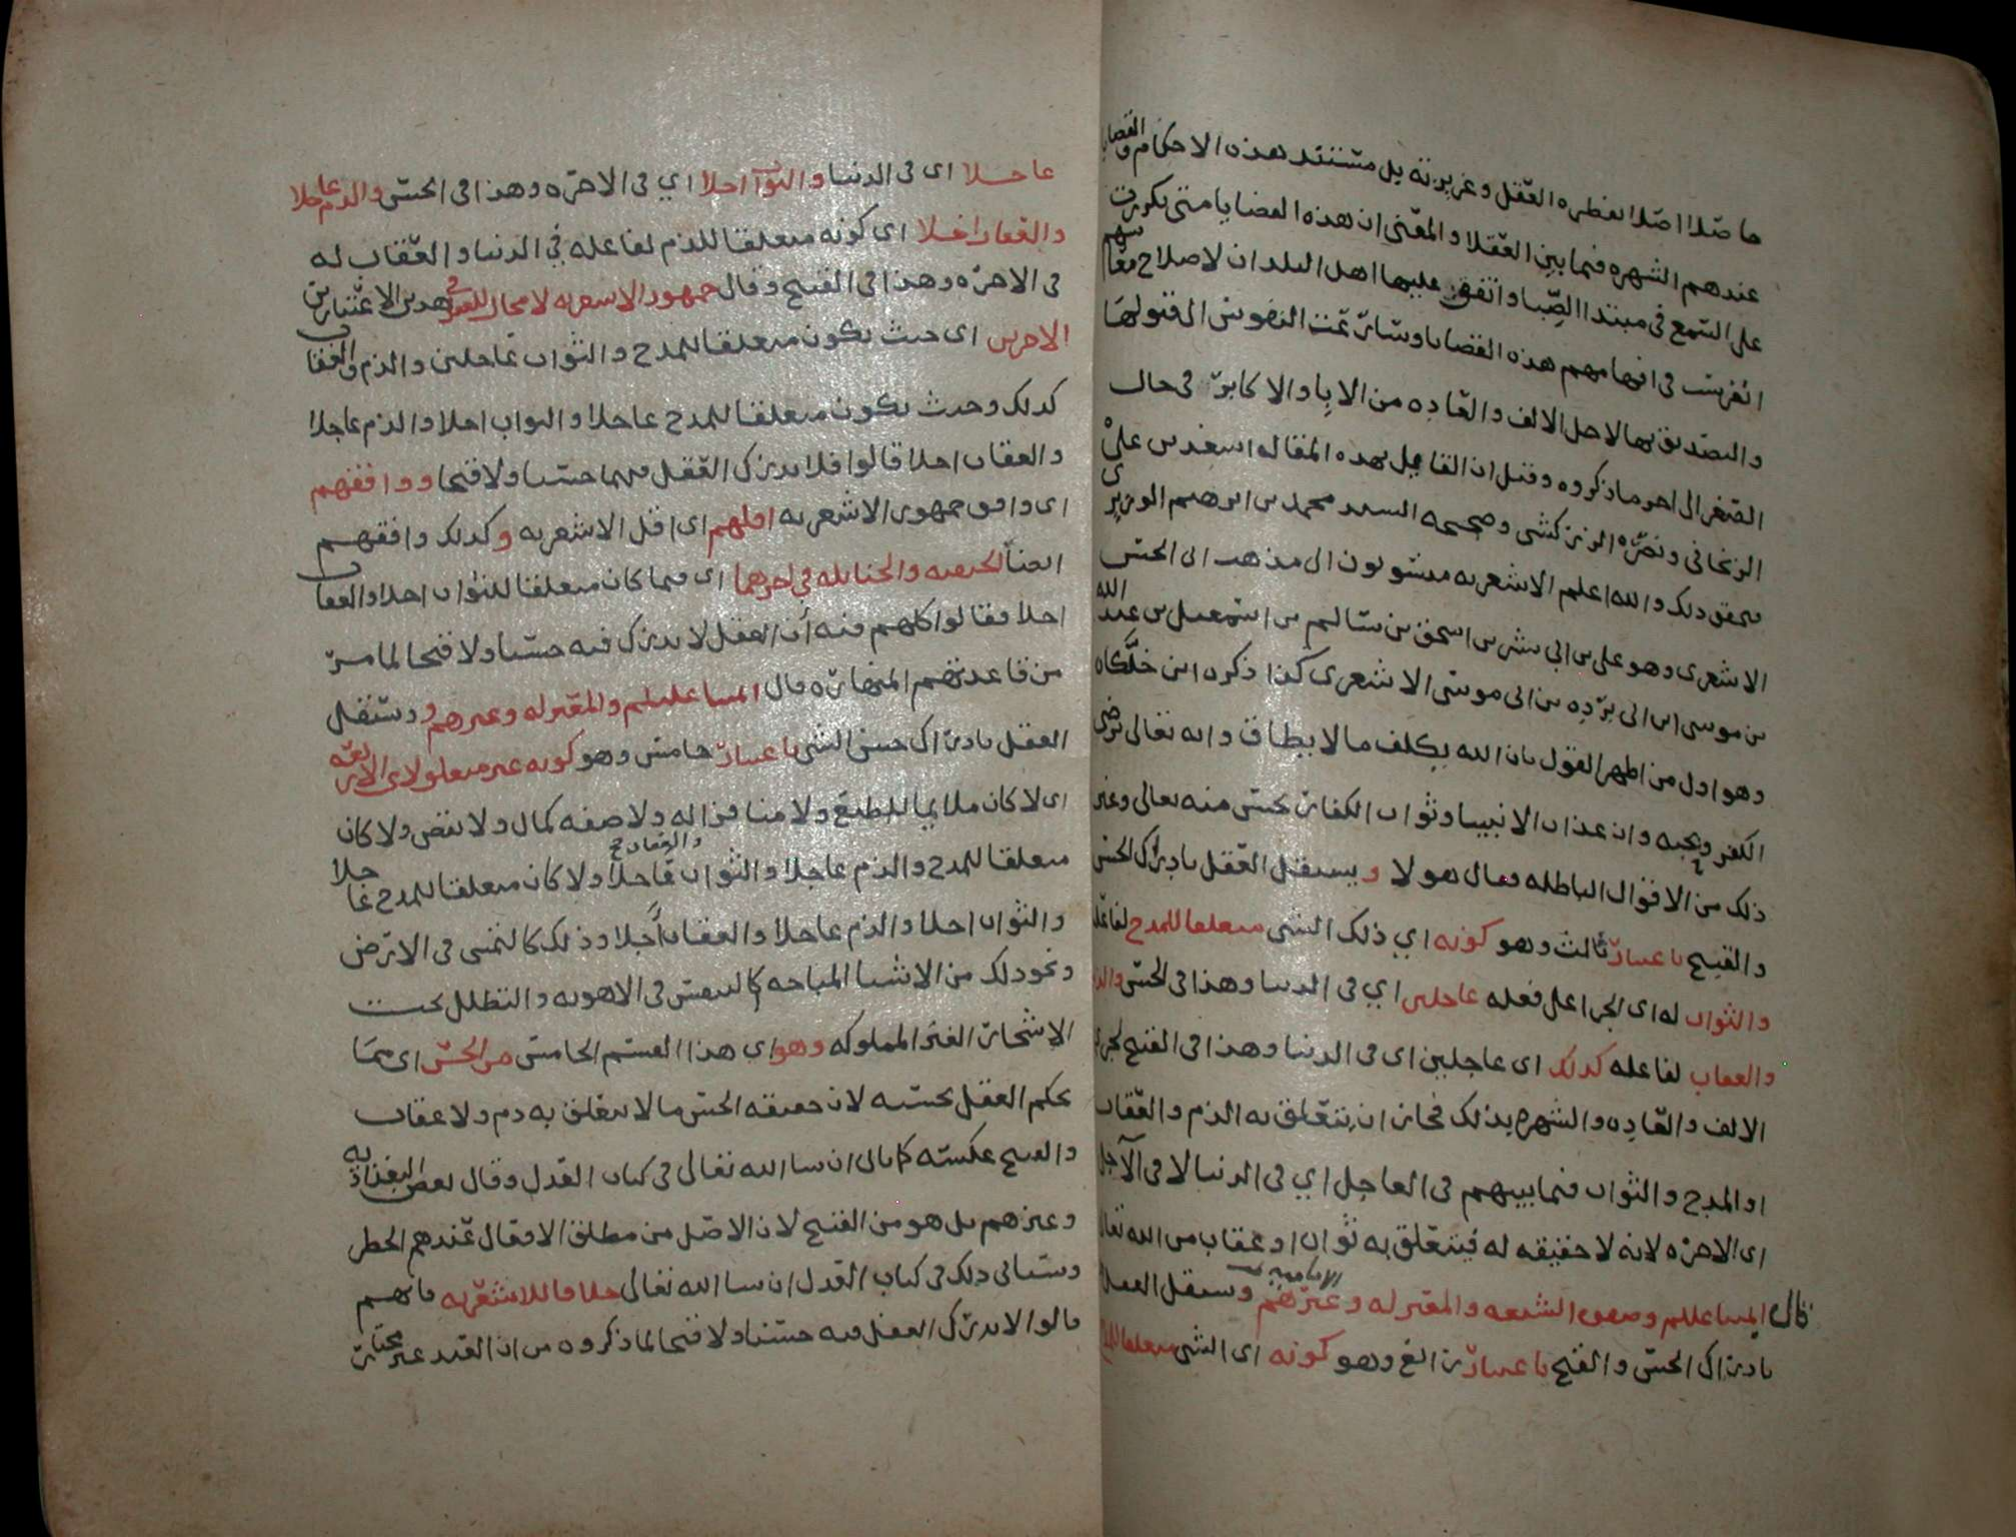 حاصلا اصلا لفطره العقل وغريزته بل مستند هذه الاحكام والقضايا
عندهم الشهره فيما بين العقلا والمعنى ان هذه القضايا متى تكررت
على السمع في مبتدا الصبا واتفق عليها اهل البلدان لاصلاح معاشهم
انغرست في افهامهم هذه القضايا وسارعت النفوس الى قبولها
والتصديق بها لاجل الالف والعاده من الابا والاكابر في حال
الصغر الى اهوما ذكروه وقيل ان القايل بهذه المقاله اسعد بن علي
الزنجاني ونصره الزركشي وصححه السيد محمد بن ابرهيم الوزير
فحقق ذلك والله اعلم الاشعريه منسوبون الى مذهب ابي الحسن
الاشعري وهو علي بن ابي بشر بن اسحق بن سالم بن اسمعيل بن عبد الله
بن موسى ابن ابي برده بن ابي موسى الاشعري كذا ذكره ابن خلكان
وهو اول من اظهر القول بان الله يكلف ما لا يطاق وانه تعالى يرضى
الكفر ويحبه وان عذاب الانبيا وثواب الكفار يحسن منه تعالى وغير
ذلك من الاقوال الباطله فقال هولا ويستقل العقل بادراك الحسن
والقبيح باعتبار ثالث وهو كونه اي ذلك الشي متعلقا للمدح لفاعله
والثواب له اى الجزا على فعله عاجلين اي في الدنيا وهذا في الحسن والذم
والعقاب لفاعله كذلك اى عاجلين اى في الدنيا وهذا في القبيح لجري
الالف والعاده والشهره بذلك فجاز ان يتعلق به الذم والعقاب
او المدح والثواب فيما بينهم في العاجل اي في الدنيا لا في الآجل
اى الاخره لانه لا حقيقه له فيتعلق به ثواب او عقاب من الله تعالى
قال ايمتنا عليلم وصفوه الشيعه والمعتزله وغيرهم الاماميه ويستقل العقل
بادراك الحسن والقبح باعتبار رابع وهو كونه اى الشي متعلقا للمدح
عاجلا اى في الدنيا والثواب اجلا اي في الاخره وهذا في الحسن والذم عاجلا
والعقاب اجلا اى كونه متعلقا للذم لفاعله في الدنيا والعقاب له
في الاخره وهذا في القبيح وقال جمهور الاشعريه لا مجال للعقل في هذين الاعتبارين
الاخرين اى حيث يكون متعلقا للمدح والثواب عاجلين والذم والعقاب
كذلك وحيث يكون متعلقا للمدح عاجلا والثواب اجلا والذم عاجلا
والعقاب اجلا قالوا فلا يدرك العقل فيهما حسنا ولا قبحا ووافقهم
اى وافق جمهور الاشعريه اقلهم اى اقل الاشعريه وكذلك وافقهم
ايضا الحنفيه والحنابله في اخرهما اى فيما كان متعلقا للثواب اجلا والعقاب
اجلا فقالوا كلهم فيه ان العقل لا يدرك فيه حسنا ولا قبحا لما مر
من قاعدتهم المنهاره قال ايمتنا عليلم والمعتزله وغيرهم ويستقل
العقل بادراك حسن الشي باعتبار خامس وهو كونه غير متعلق لاي الاربعه
اى لا كان ملايما للطبع ولا منافرا له ولا صفه كمال ولا نقص ولا كان
متعلقا للمدح والذم عاجلا والثواب والعقاب عاجلا ولا كان متعلقا للمدح عاجلا
والثواب اجلا والذم عاجلا والعقاب آجلا وذلك كالتمشي في الارض
ونحو ذلك من الاشيا المباحه كالتنفس في الاهويه والتظلل تحت
الاشجار الغير المملوكه وهو اي هذا القسم الخامس من الحسن اى مما
يحكم العقل بحسنه لان حقيقه الحسن ما لا يتعلق به ذم ولا عقاب
والقبيح عكسه كما ياتي ان شا الله تعالى في كتاب العدل وقال بعض البغداديه
وغيرهم بل هو من القبيح لان الاصل من مطلق الافعال عندهم الحظر
وسياتي ذلك في كتاب العدل ان شا الله تعالى خلافا للاشعريه فانهم
قالوا لا يدرك العقل فيه حسنا ولا قبحا لما ذكروه من ان العبد غير مختار